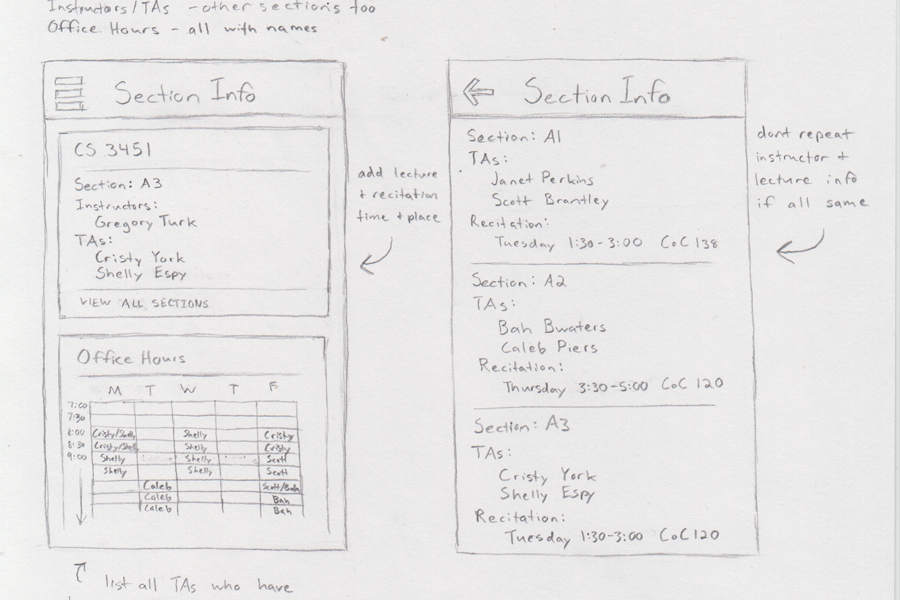 Instructors/TAs - other sections too
Office Hours - all with names
Section Info
CS 3451
Section: A3
Instructors:
Gregory Turk
TAs:
Cristy York
Shelly Espy
VIEW ALL SECTIONS
Office Hours
M T W T F
7:00
7:30
8:00 Cristy/Shelly Shelly Cristy
8:30 Cristy/Shelly Shelly Cristy
9:00 Shelly Shelly Scott
Shelly Shelly Scott
Caleb Scott/Bah
Caleb Bah
Caleb Bah
list all TAs who have
add lecture
+ recitation
time + place
Section Info
Section: A1
TAs:
Janet Perkins
Scott Brantley
Recitation:
Tuesday 1:30-3:00 CoC 138
Section: A2
TAs:
Bah Bwaters
Caleb Piers
Recitation:
Thursday 3:30-5:00 CoC 120
Section: A3
TAs:
Cristy York
Shelly Espy
Recitation:
Tuesday 1:30-3:00 CoC 120
dont repeat
instructor +
lecture info
if all same